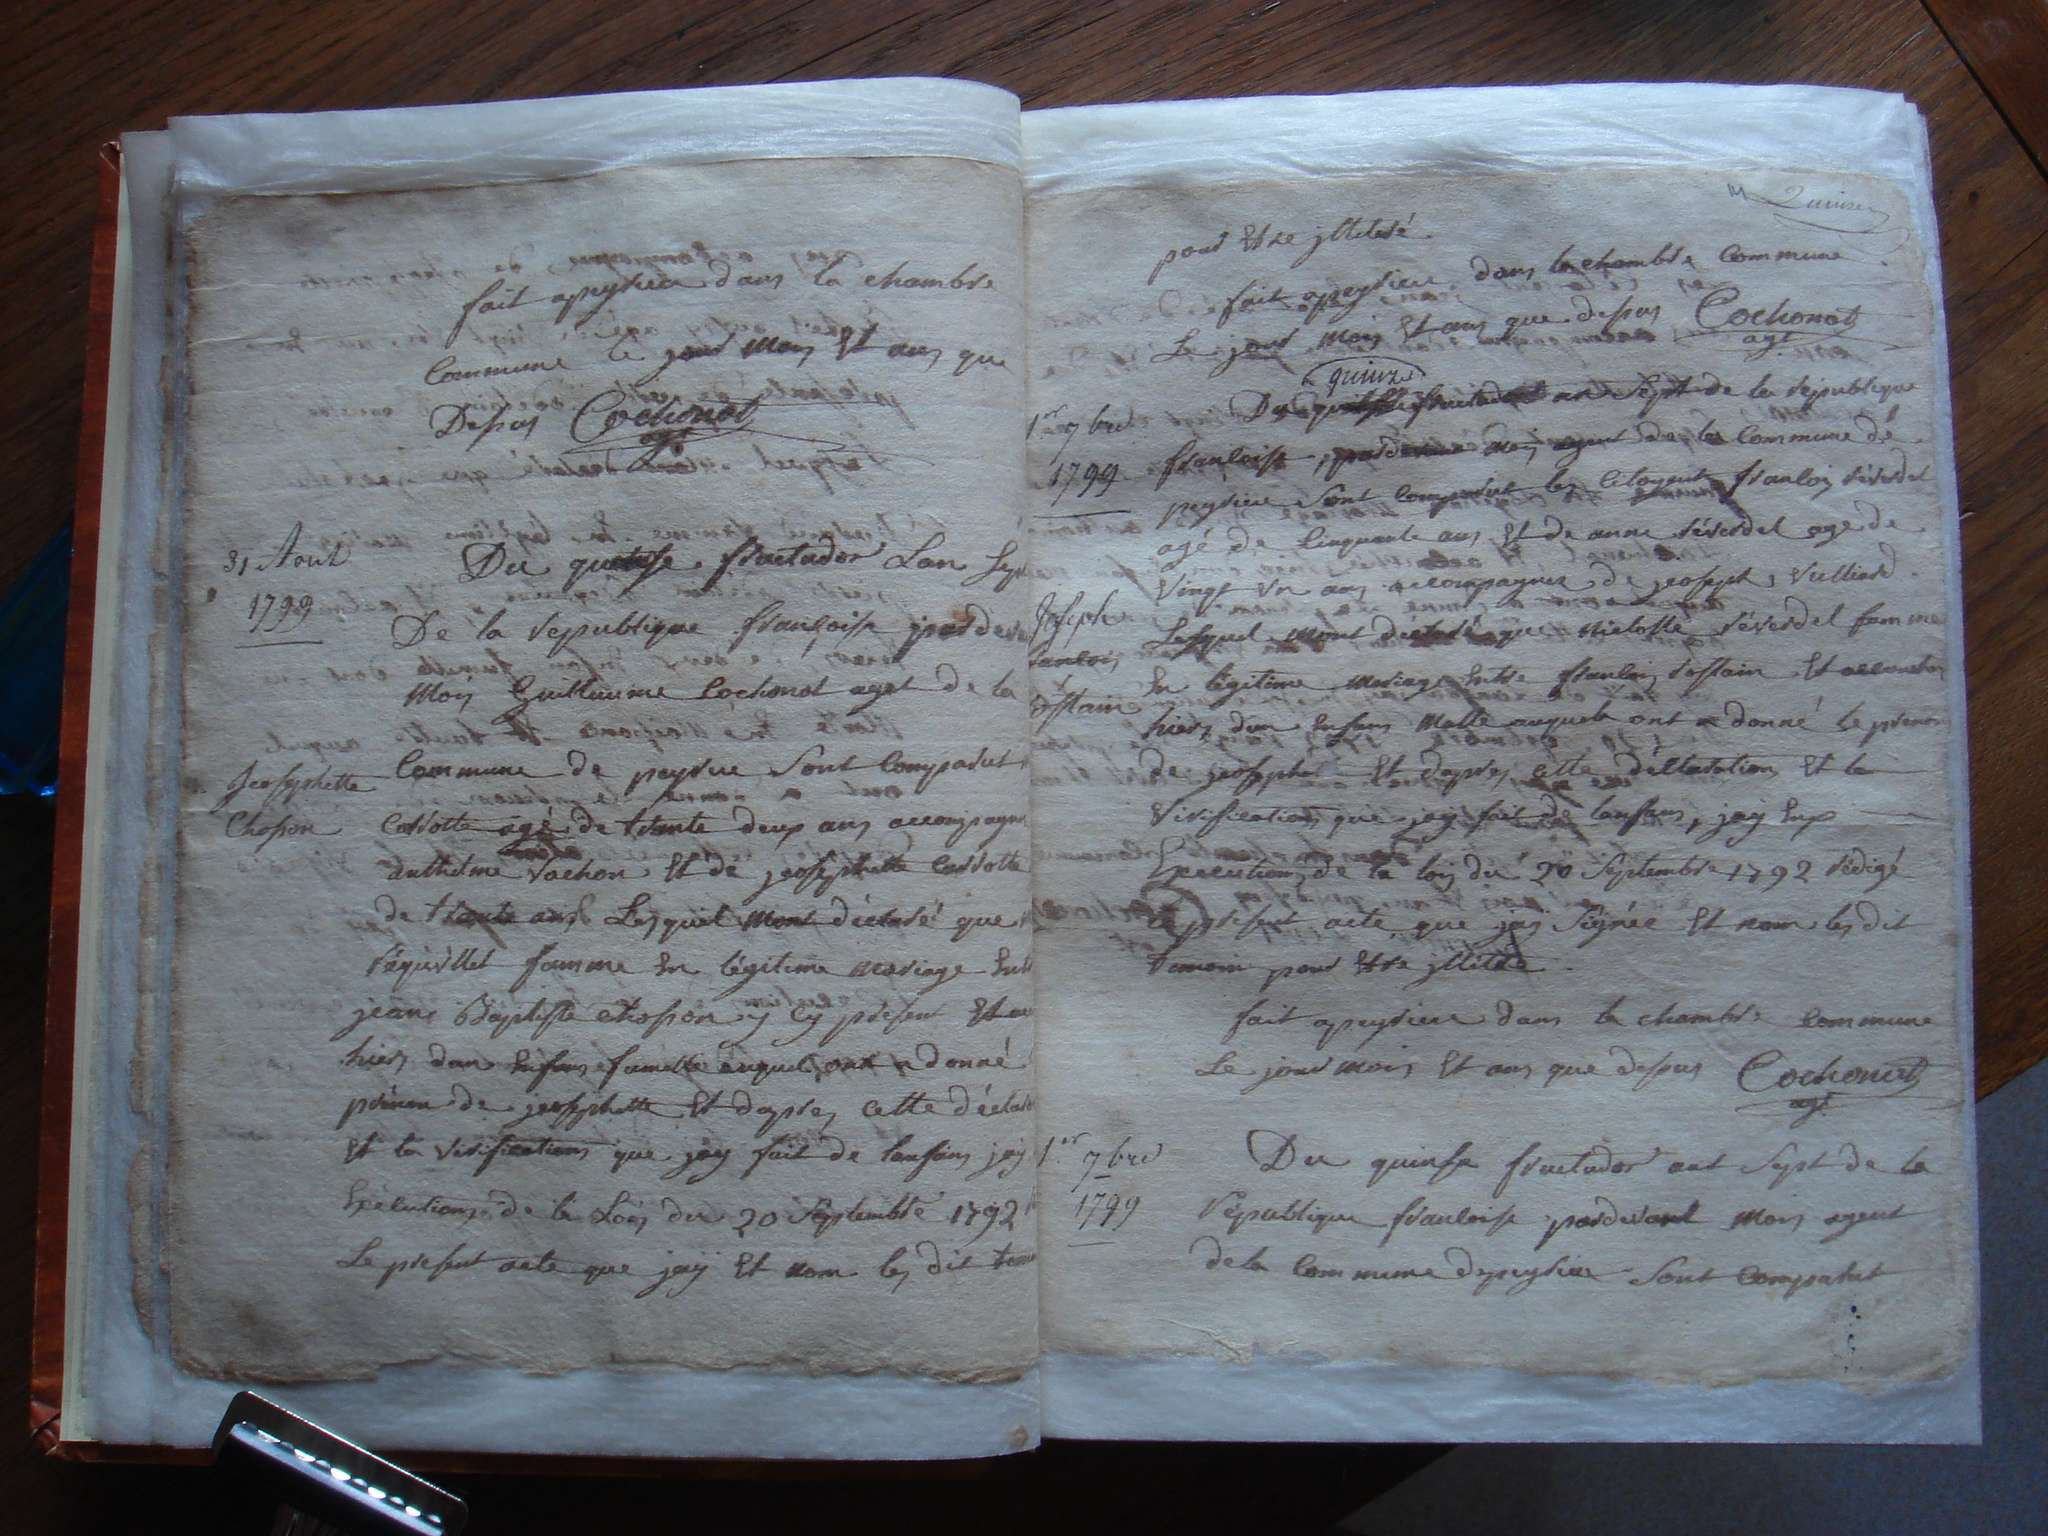 fait apeyrieu dans la chambre
Commune le jour mois Et ans que
Depus Cochonat
agt
31 Aout
1799
Du quatorse fructudor Lan Sept
De la republique françoise pardeva
Moi Guillaume Cochonat aget de la
Commune de peyrieu Sont Comparut
Jeosephette
Chosson
Carrotte agé de trante deux ans accompagné
danthelme Vachon Et de jeosephette Carrotte
de trante ans Lesquel mont déclaré que
réquillet famme En légitime mariage Entr
jean Baptiste chosson y cy présent Et
hiers dun Enfans famelle auquel ont a donné
prénon de jeosephette Et dapres cette déclara
Et la Virification que jay fait de lanfans jay
Exécutions de la Lois du 20 Septembre 1792
Le présent acte que jay Et nom les dit temo
14 Quinze
pour Etre jlliteré
fait apeyrieu dans la chambre Commune
Le jour mois Et ans que depus Cochonat
agt
quinze
1er 7bre
1799
Du fructudor an Sept de la république
françoise, pardevant moi agent de la Commune dé
peyrieu Sont Comparut les Citoyent françois réverdel
agé de Cinquante ans Et de anne réverdel age de
Vingt un ans accompagner de jeoseph, Vulliard
Joseph
francois
rostain
Lesquel mont déclaré que réverdel famme
En légitime mariage Entre françois rostain Et accouchée
hiers dun Enfans malle auquele ont a donné le prenon
de jeoseph Et dapres cette délaration Et la
Virification que jay fait de lanfans, jay Enx
Exécutions de la lois du 20 Septembre 1792 rédigé
le présent acte que jay Signée Et nom les dit
temoin pour Etre jllitéré
fait apeyrieu dans la chambre Commune
Le jour mois Et ans que depus Cochonat
agt
1er 7bre
1799
Du quinse fructudor ant Sept de la
république francoise pardevant mois agent
de la Commune depeyrieu Sont Comparut